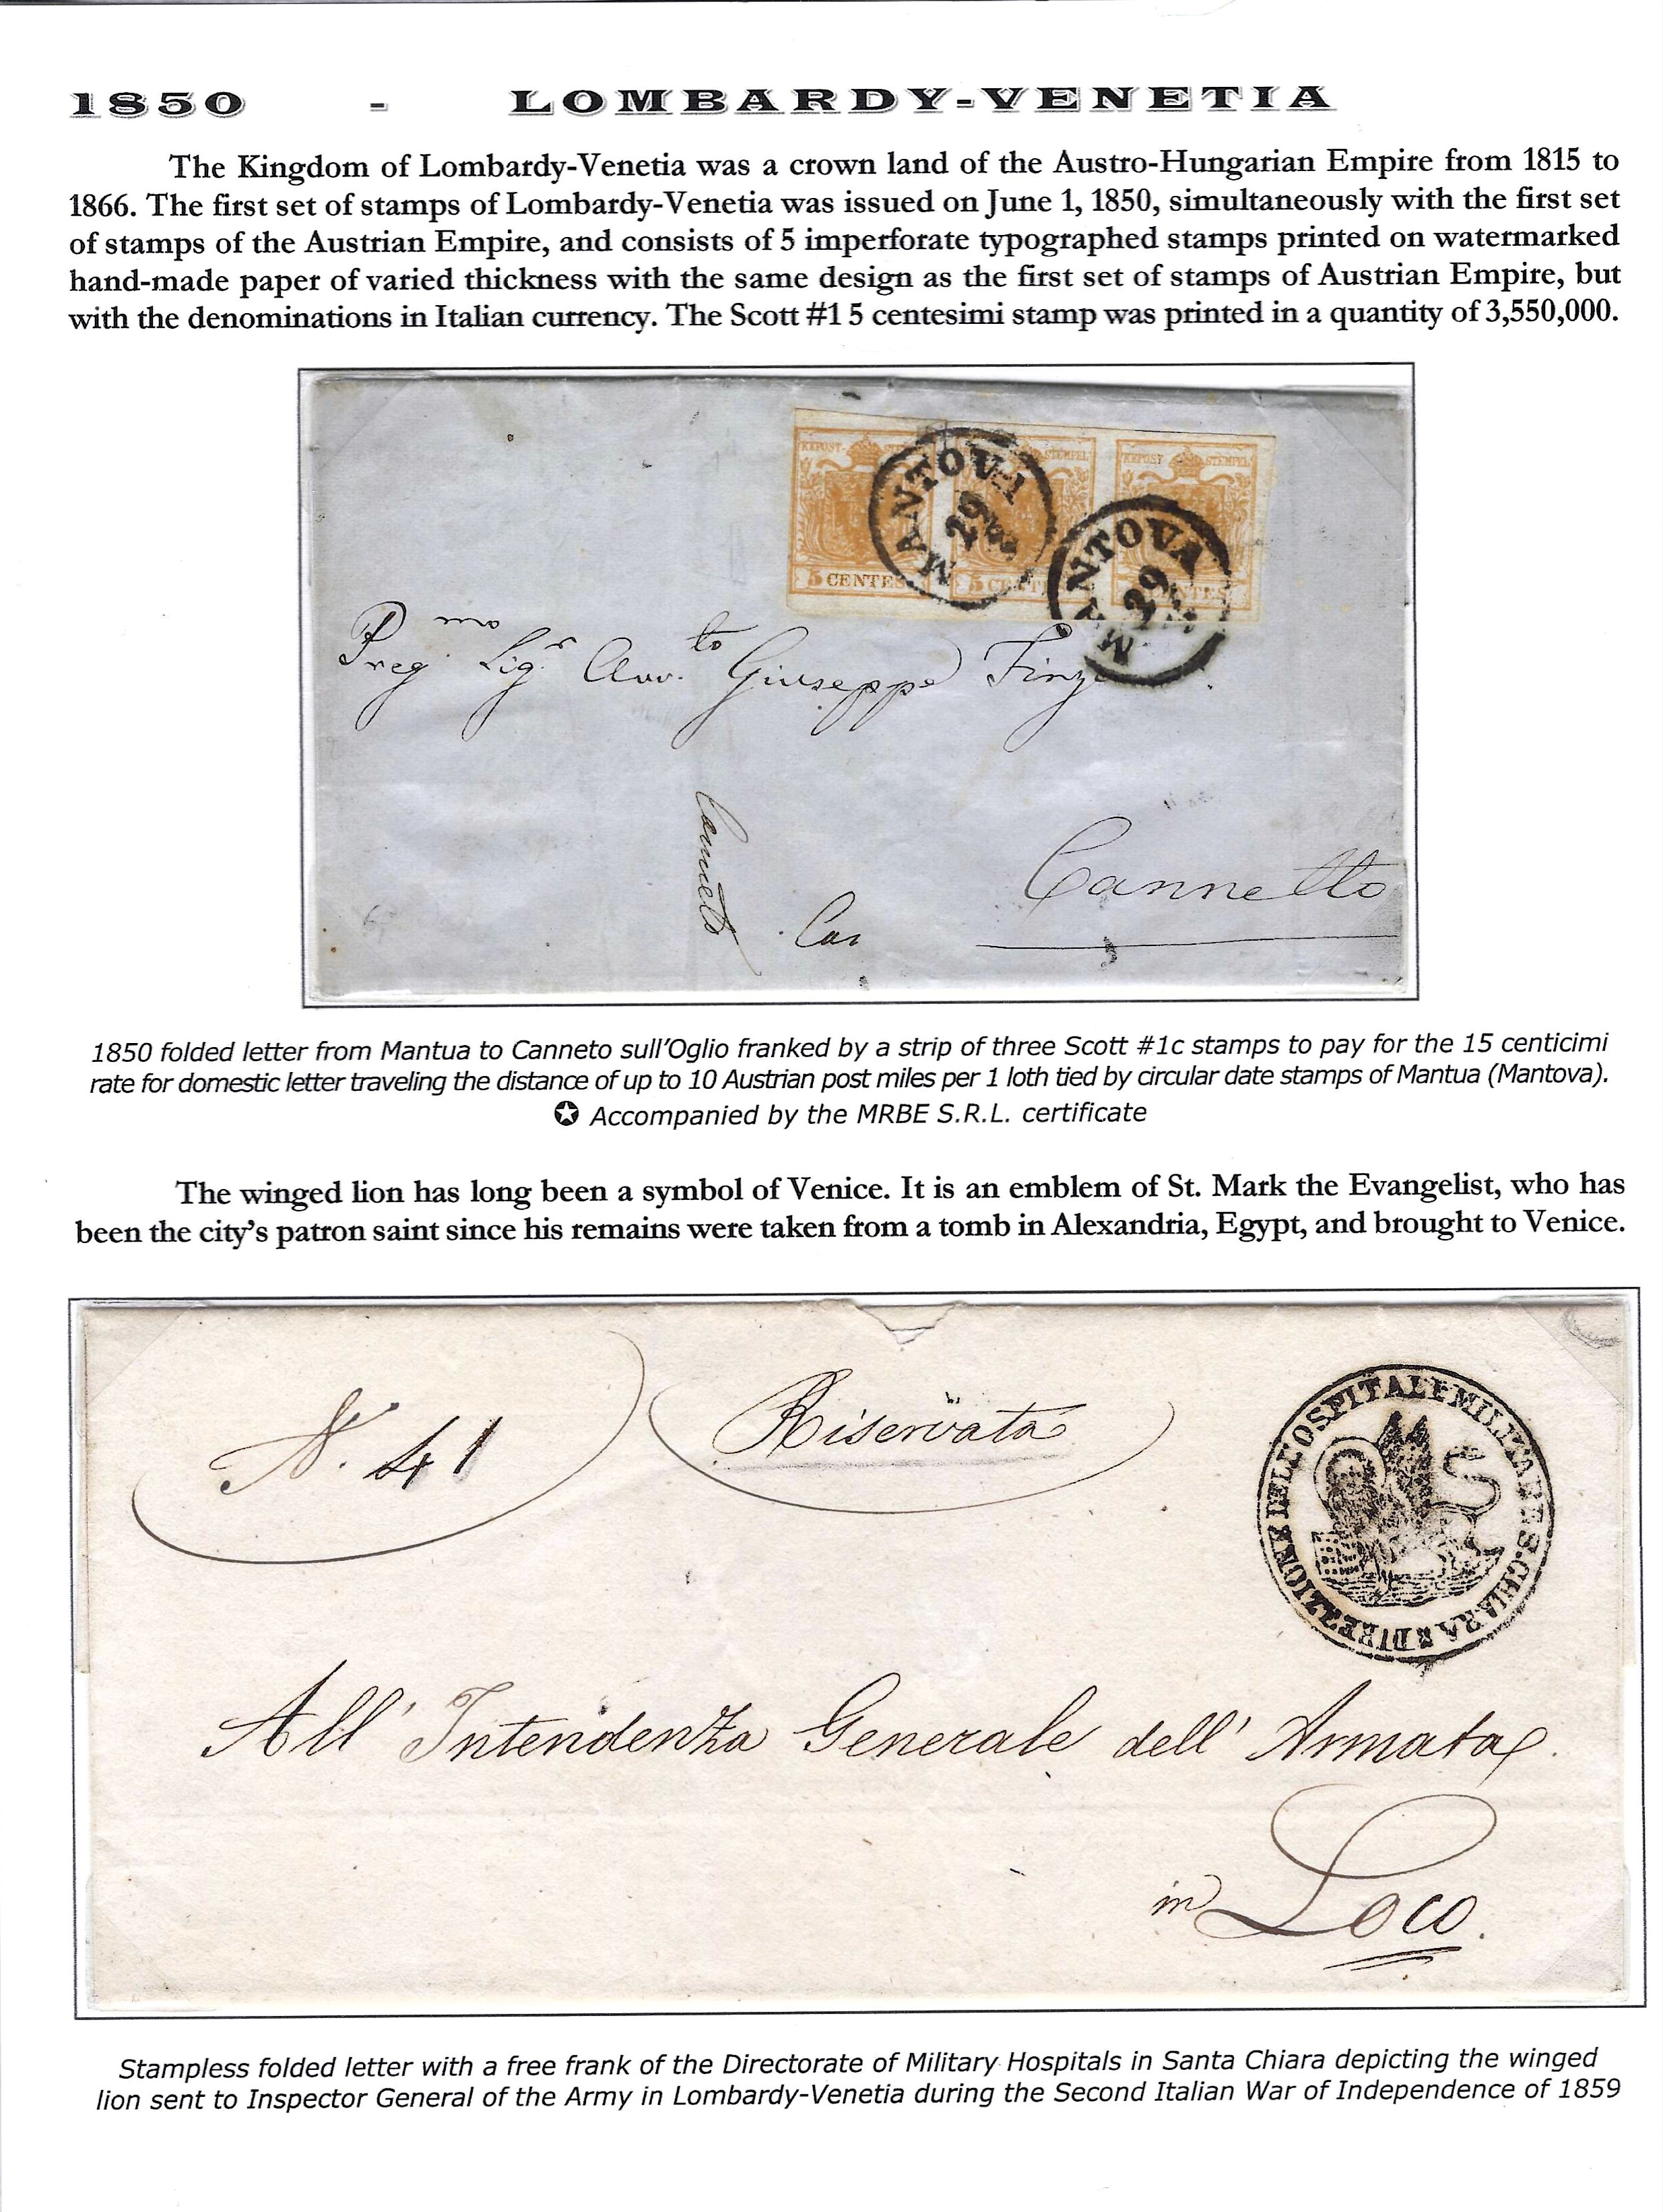 1850 - LOMBARDY-VENETIA
The Kingdom of Lombardy-Venetia was a crown land of the Austro-Hungarian Empire from 1815 to
1866. The first set of stamps of Lombardy-Venetia was issued on June 1, 1850, simultaneously with the first set
of stamps of the Austrian Empire, and consists of 5 imperforate typographed stamps printed on watermarked
hand-made paper of varied thickness with the same design as the first set of stamps of Austrian Empire, but
with the denominations in Italian currency. The Scott #1 5 centesimi stamp was printed in a quantity of 3,550,000.
KKPOST- STEMPEL KKPOST STEMPEL
MANTOVA
29
MANTOVA
29
5 CENTES
Preg.mo Sig.r Avv.to Giuseppe Finzi
Canneto
Cannetto
Can
1850 folded letter from Mantua to Canneto sull'Oglio franked by a strip of three Scott #1c stamps to pay for the 15 centicimi
rate for domestic letter traveling the distance of up to 10 Austrian post miles per 1 loth tied by circular date stamps of Mantua (Mantova).
✪ Accompanied by the MRBE S.R.L. certificate
The winged lion has long been a symbol of Venice. It is an emblem of St. Mark the Evangelist, who has
been the city's patron saint since his remains were taken from a tomb in Alexandria, Egypt, and brought to Venice.
N. 41
Riservata
DIREZZIONE DELL'OSPITALE MILITARE S. CHIARA
All' Intendenza Generale dell' Armata
in Loco.
Stampless folded letter with a free frank of the Directorate of Military Hospitals in Santa Chiara depicting the winged
lion sent to Inspector General of the Army in Lombardy-Venetia during the Second Italian War of Independence of 1859